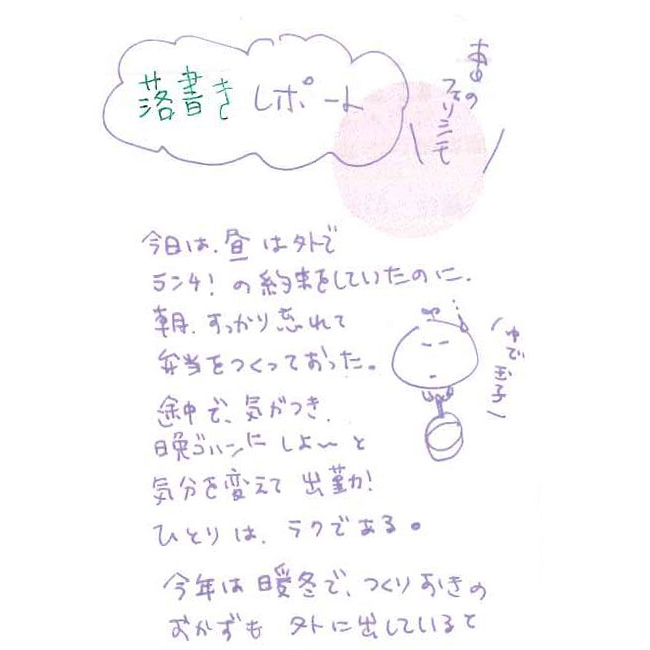 落書き レポート
春の
フェリシモ
今日は、昼は外で
ランチ！の約束をしていたのに、
朝、すっかり忘れて
弁当をつくっておった。
ゆで玉子
途中で、気がつき、
晩ゴハンにしよ〜と
気分を変えて 出勤！
ひとりは、ラクである。
今年は暖冬で、つくりおきの
おかずも 外に出していると